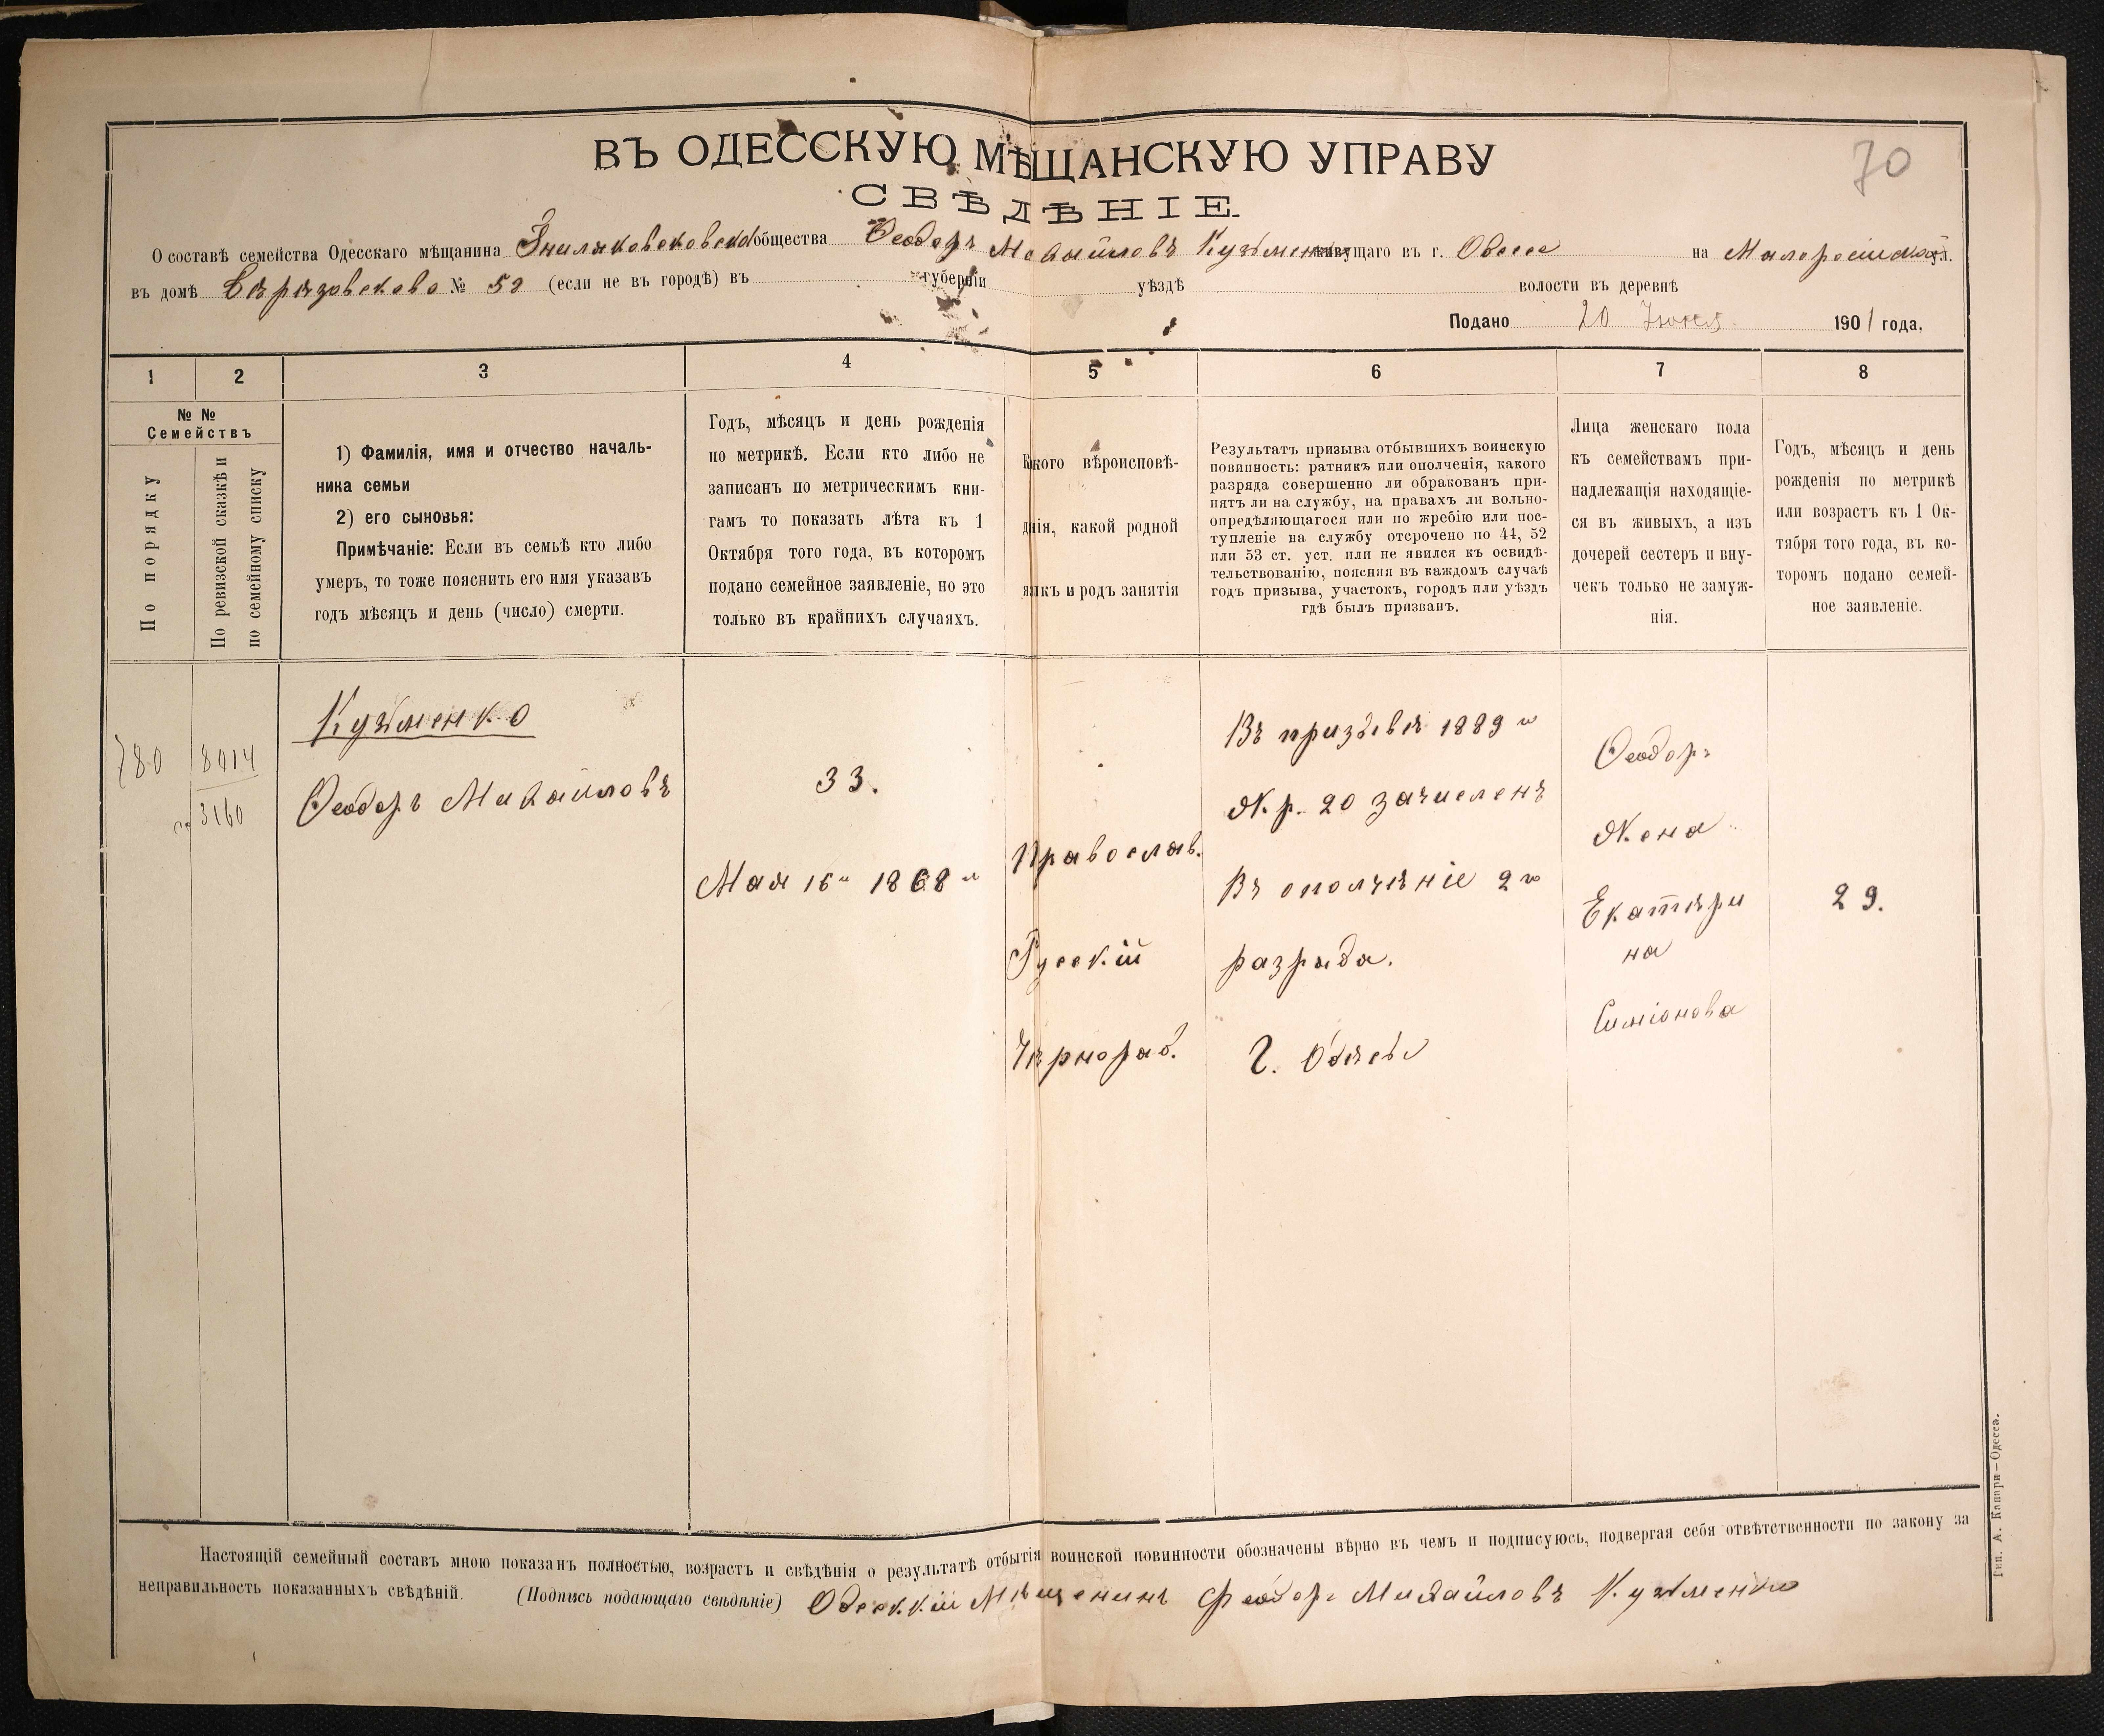 70
ВЪ ОДЕССКУЮ МѢЩАНСКУЮ УПРАВУ
СВѢДѢНІЕ.
О составѣ семейства Одесскаго мѣщанина общества Ѳеодоръ Михайловъ Кузьменко живущаго въ г. Одессе на ул.
въ домѣ № (если не въ городѣ) въ губерніи уѣздѣ волости въ деревнѣ
Подано 20 1901 года.
1 2 3 4 5 6 7 8
№ №
Семействъ
По порядку
По ревизской сказкѣ и
по семейному списку
1) Фамилія, имя и отчество началь-
ника семьи
2) его сыновья:
Примѣчаніе: Если въ семьѣ кто либо
умеръ, то тоже пояснить его имя указавъ
годъ мѣсяцъ и день (число) смерти.
Годъ, мѣсяцъ и день рожденія
по метрикѣ. Если кто либо не
записанъ по метрическимъ кни-
гамъ то показать лѣта къ 1
Октября того года, въ которомъ
подано семейное заявленіе, но это
только въ крайнихъ случаяхъ.
Какого вѣроисповѣ-
данія, какой родной
языкъ и родъ занятія
Результатъ призыва отбывшихъ воинскую
повинность: ратникъ или ополченія, какого
разряда совершенно ли обракованъ при-
нятъ ли на службу, на правахъ ли вольно-
опредѣляющагося или по жребію или пос-
тупленіе на службу отсрочено по 44, 52
или 53 ст. уст. или не явился къ освидѣ-
тельствованію, поясняя въ каждомъ случаѣ
годъ призыва, участокъ, городъ или уѣздъ
гдѣ былъ призванъ.
Лица женскаго пола
къ семействамъ при-
надлежащія находящіе-
ся въ живыхъ, а изъ
дочерей сестеръ и вну-
чекъ только не замуж-
нія.
Годъ, мѣсяцъ и день
рожденія по метрикѣ
или возрастъ къ 1 Ок-
тября того года, въ ко-
торомъ подано семей-
ное заявленіе.
780
8014
3160
Кузьменко
Ѳеодоръ Михайловъ
33.
Мая 16го 1868 г
Православ.
Русскій
Чѣрнораб.
Въ призывѣ 1889 г
Ж.р. 20 зачисленъ
Въ ополчѣніе 2го
разряда.
Г. Одѣсы
Ѳеодоръ
Жена
Екатѣри
на
Симіонова
29.
Настоящій семейный составъ мною показанъ полностью, возрастъ и свѣдѣнія о результатѣ отбытія воинской повинности обозначены вѣрно въ чемъ и подписуюсь, подвергая себя отвѣтственности по закону за
неправильность показанныхъ свѣдѣній. (Подпись подающаго свѣдѣніе) Одесскій Мѣщенинъ Феодоръ Михайловъ Кузьменко
Тип. А. Капари—Одесса.